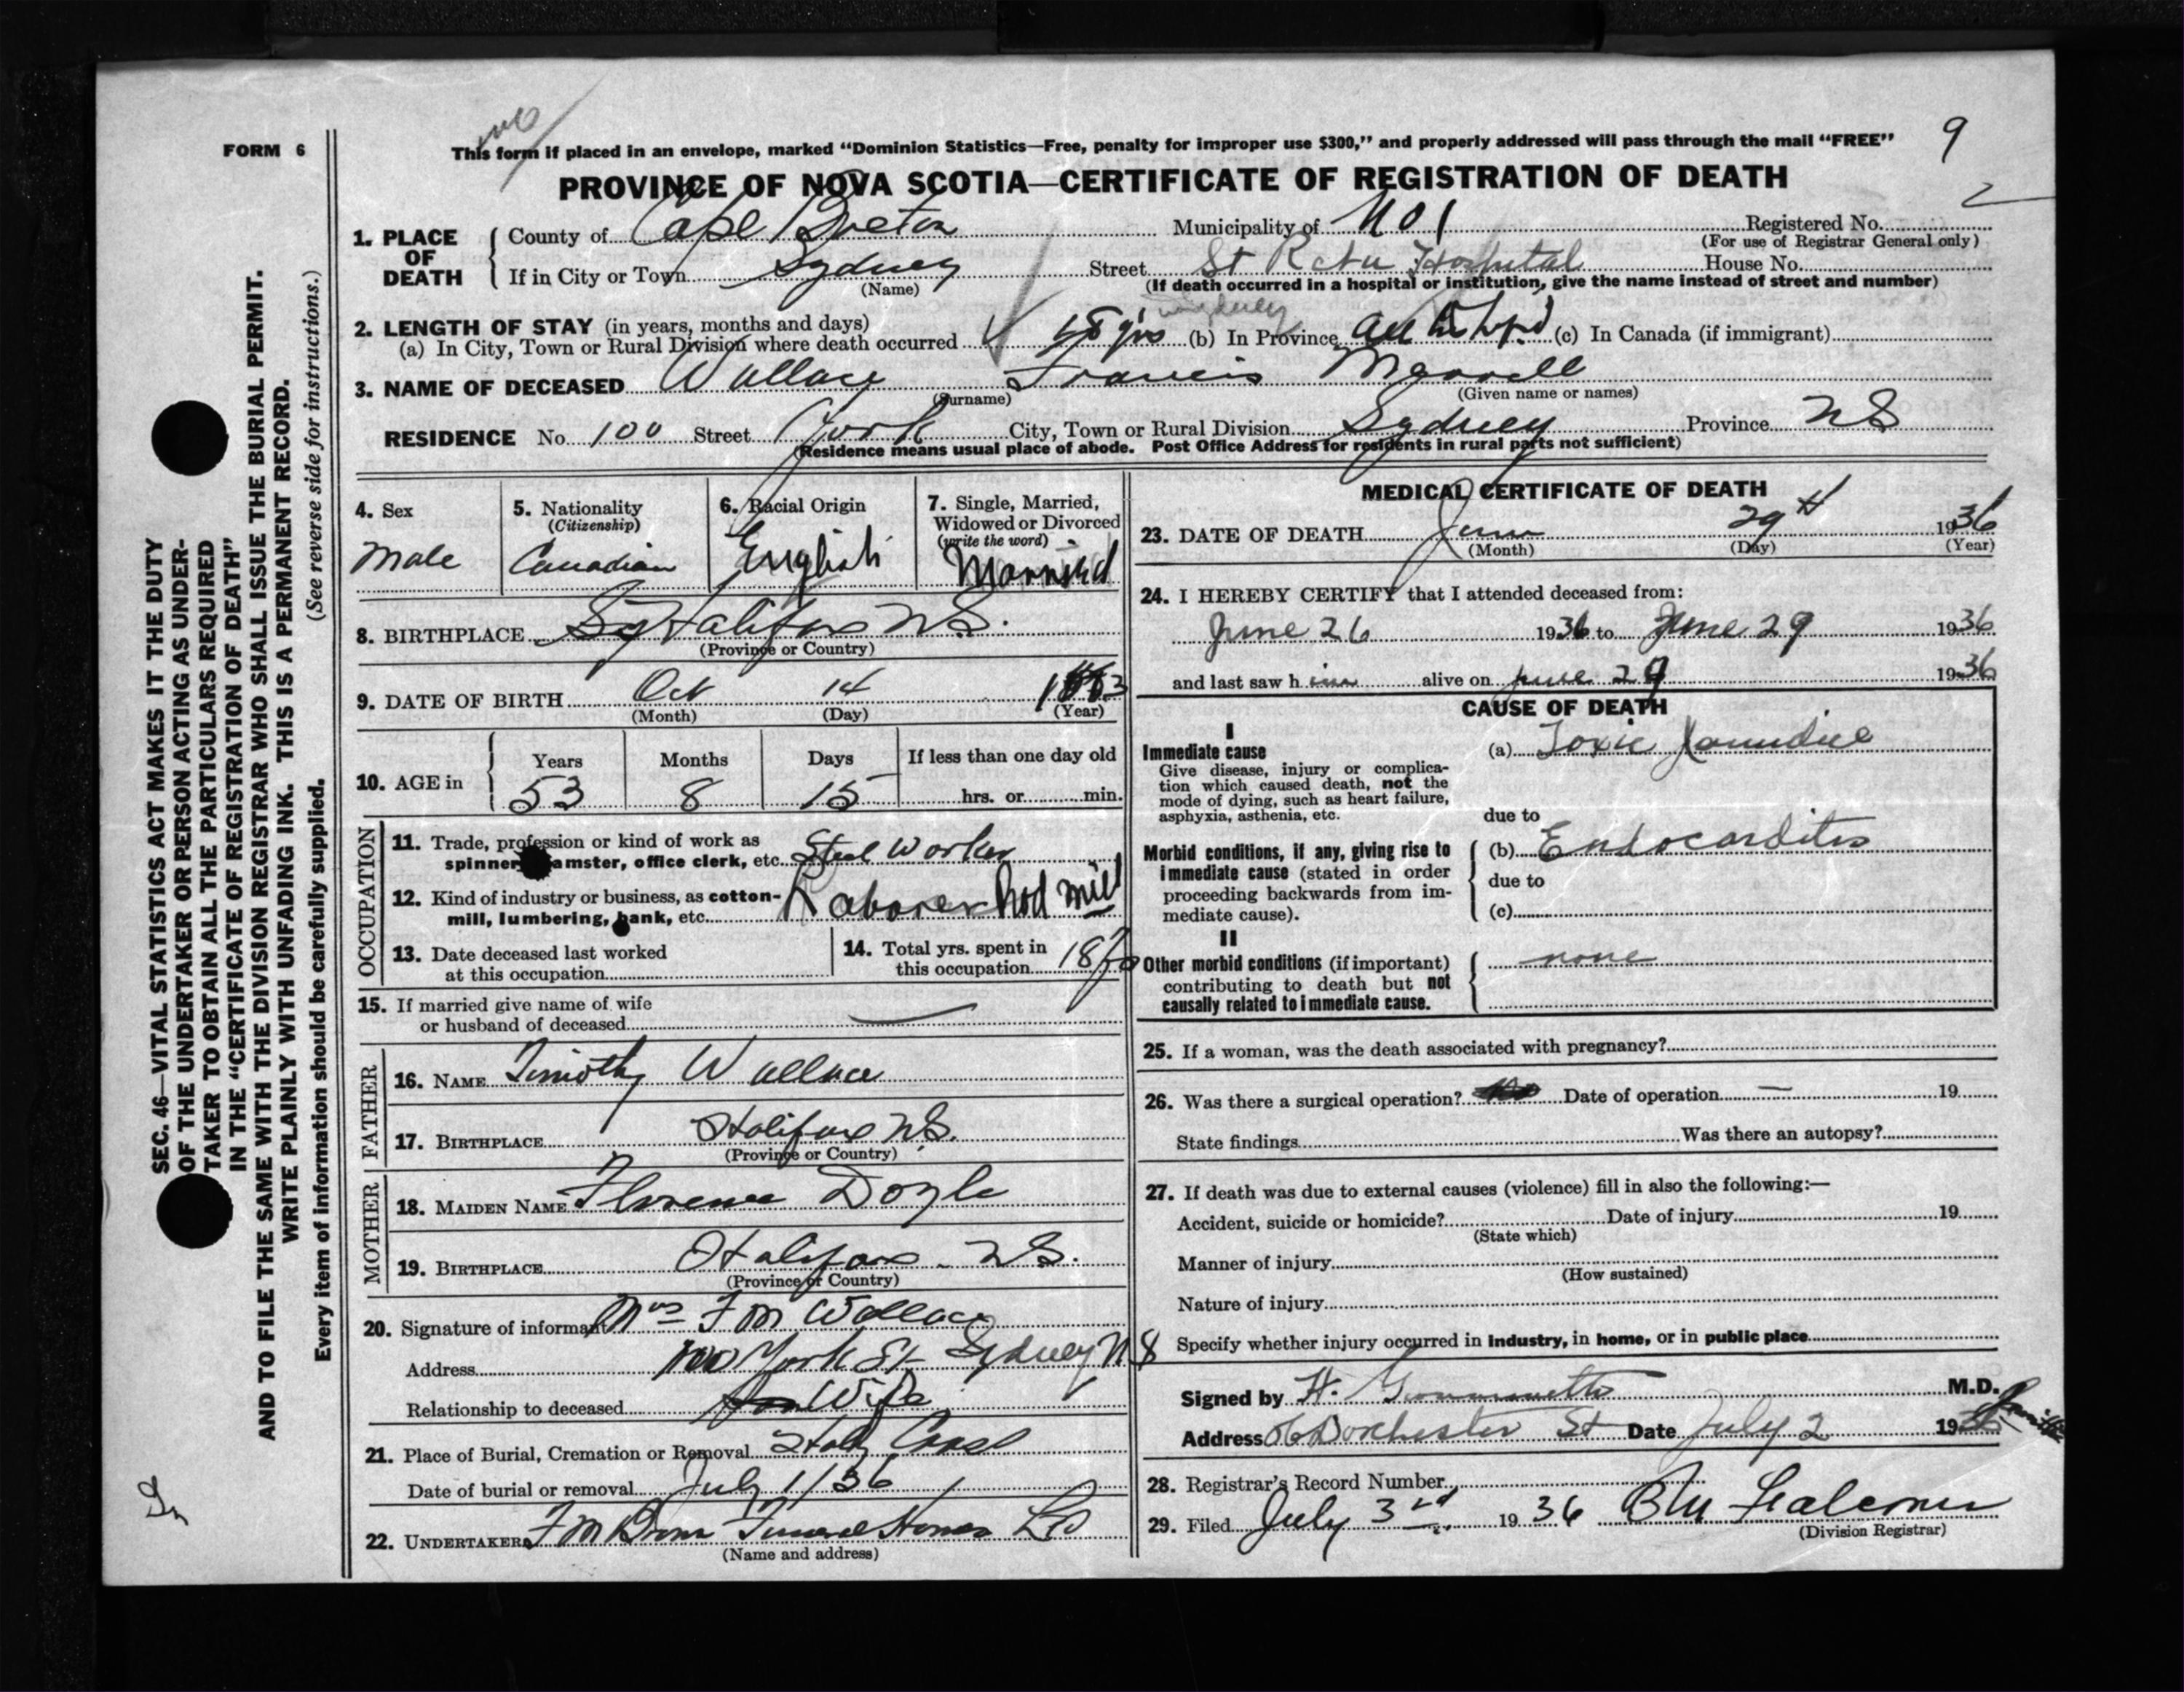 FORM 6
This form if placed in an envelope, marked “Dominion Statistics—Free, penalty for improper use $300,” and properly addressed will pass through the mail “FREE”
9
PROVINCE OF NOVA SCOTIA—CERTIFICATE OF REGISTRATION OF DEATH
SEC. 46—VITAL STATISTICS ACT MAKES IT THE DUTY
OF THE UNDERTAKER OR PERSON ACTING AS UNDER-
TAKER TO OBTAIN ALL THE PARTICULARS REQUIRED
IN THE “CERTIFICATE OF REGISTRATION OF DEATH”
AND TO FILE THE SAME WITH THE DIVISION REGISTRAR WHO SHALL ISSUE THE BURIAL PERMIT.
WRITE PLAINLY WITH UNFADING INK. THIS IS A PERMANENT RECORD.
Every item of information should be carefully supplied. (See reverse side for instructions.)
1. PLACE OF DEATH
County of Cape Breton Municipality of Registered No.
(For use of Registrar General only)
If in City or Town Sydney Street St Rita Hospital House No.
(Name) (If death occurred in a hospital or institution, give the name instead of street and number)
2. LENGTH OF STAY (in years, months and days)
(a) In City, Town or Rural Division where death occurred yrs (b) In Province (c) In Canada (if immigrant)
3. NAME OF DECEASED Wallace Francis
(Surname) (Given name or names)
RESIDENCE No. 100 Street York City, Town or Rural Division Sydney Province NS
(Residence means usual place of abode. Post Office Address for residents in rural parts not sufficient)
4. Sex
Male
5. Nationality
(Citizenship)
Canadian
6. Racial Origin
English
7. Single, Married,
Widowed or Divorced
(write the word)
Married
8. BIRTHPLACE Halifax N.S.
(Province or Country)
9. DATE OF BIRTH Oct 14
(Month) (Day) (Year)
10. AGE in
Years Months Days If less than one day old
53 8 15 hrs. or min.
OCCUPATION
11. Trade, profession or kind of work as
spinner, amster, office clerk, etc. Steel Worker
12. Kind of industry or business, as cotton-
mill, lumbering, bank, etc. Laborer Rod Mill
13. Date deceased last worked
at this occupation
14. Total yrs. spent in
this occupation 18
15. If married give name of wife
or husband of deceased —
FATHER
16. NAME Timothy Wallace
17. BIRTHPLACE Halifax N.S.
(Province or Country)
MOTHER
18. MAIDEN NAME Florence Doyle
19. BIRTHPLACE Halifax N.S.
(Province or Country)
20. Signature of informant Mrs F M Wallace
Address 100 York St Sydney N S
Relationship to deceased Wife
21. Place of Burial, Cremation or Removal Holy Cross
Date of burial or removal July 1/36
22. UNDERTAKER F M Funeral Homes Ltd
(Name and address)
MEDICAL CERTIFICATE OF DEATH
23. DATE OF DEATH June 29th 1936
(Month) (Day) (Year)
24. I HEREBY CERTIFY that I attended deceased from:
June 26 1936 to June 29 1936
and last saw him alive on June 29 1936
CAUSE OF DEATH
I
Immediate cause
Give disease, injury or complica-
tion which caused death, not the
mode of dying, such as heart failure,
asphyxia, asthenia, etc.
(a) Toxic Jaundice
due to
Morbid conditions, if any, giving rise to
immediate cause (stated in order
proceeding backwards from im-
mediate cause).
(b) Endocarditis
due to
(c)
II
Other morbid conditions (if important)
contributing to death but not
causally related to immediate cause.
none
25. If a woman, was the death associated with pregnancy?
26. Was there a surgical operation? Date of operation — 19
State findings Was there an autopsy?
27. If death was due to external causes (violence) fill in also the following:—
Accident, suicide or homicide? Date of injury 19
(State which)
Manner of injury
(How sustained)
Nature of injury
Specify whether injury occurred in Industry, in home, or in public place
Signed by H. M.D.
Address Dorchester St Date July 2 19
28. Registrar's Record Number
29. Filed July 3rd 1936
(Division Registrar)